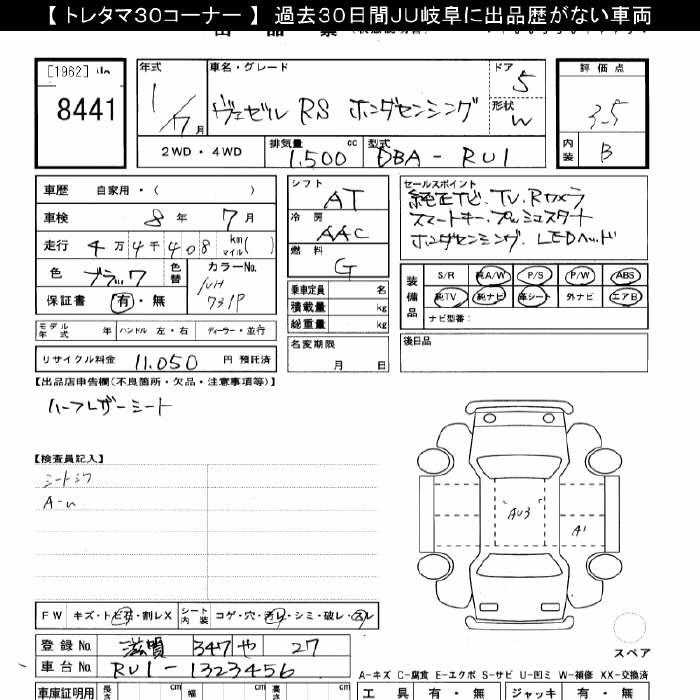 【 トレタマ30コーナー 】 過去30日間JU岐阜に出品歴がない車両
[1962]
8441
年式
1/7月
車名・グレード
ヴェゼル RS ホンダセンシング
ドア 5
形状 W
評価点
3.5
内装 B
2WD・4WD
排気量 1,500 cc
型式 DBA - RU1
車歴 自家用・( )
車検 8年 7月
走行 4万4千408 km マイル( )
色 ブラック 色替
カラーNo.
NH
731P
保証書 有・無
モデル年式 年 ハンドル 左・右 ディーラー・並行
リサイクル料金 11,050 円 預託済
シフト AT
冷房 AAC
燃料 G
乗車定員 名
積載量 kg
総重量 kg
名変期限
月 日
セールスポイント
純正ナビ.TV.Rカメラ
スマートキー.プッシュスタート
ホンダセンシング.LEDヘッド
装備品
S/R 純A/W P/S P/W ABS
純TV 純ナビ 革シート 外ナビ エアB
ナビ型番:
後日品
【出品店申告欄(不良箇所・欠品・注意事項等)】
ハーフレザーシート
【検査員記入】
シートシワ
A-u
AU3
A1
スペア
FW キズ・トビ石・割レX シート内装 コゲ・穴・汚レ・シミ・破レ・スレ
登録No. 滋賀 347 や 27
車台No. RU1-1323456
A-キズ C-腐食 E-エクボ S-サビ U-凹ミ W-補修 XX-交換済
車庫証明用 長さ cm 幅 cm 高さ cm
工具 有・無 ジャッキ 有・無